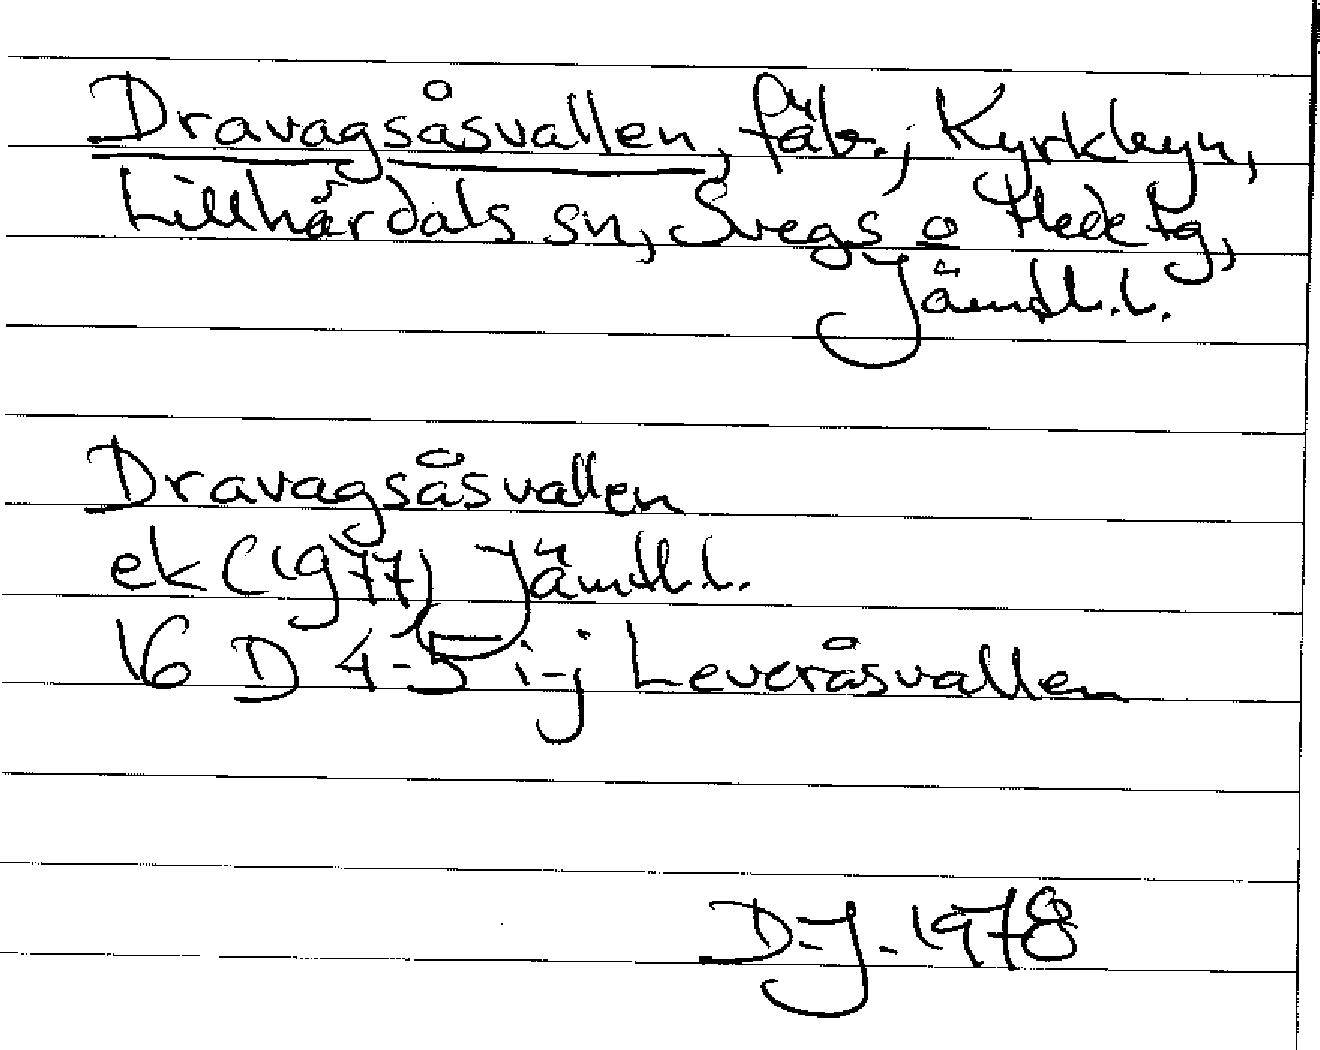 Dravagsåsvallen, fäb.; Kyrkbyn,
Lillhärdals sn, Svegs o Hede tg,
Jämtl.l.
Dravagsåsvallen
ek (1977) Jämtl.l.
16 D 4-5 i-j Leveråsvallen
D.J. 1978